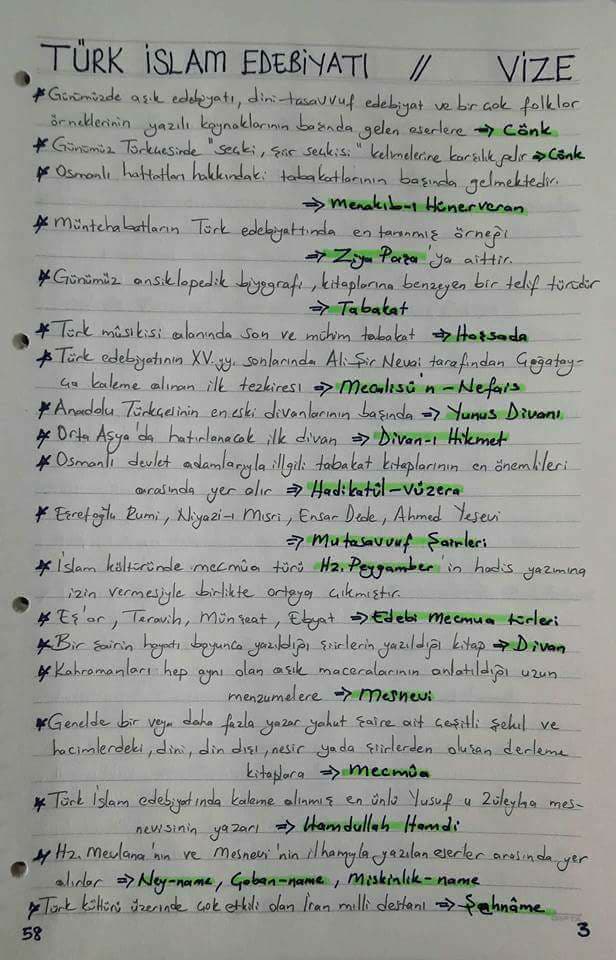 TÜRK İSLAM EDEBİYATI // VİZE
* Günümüzde aşık edebiyatı, dini-tasavvuf edebiyat ve bir çok folklor
örneklerinin yazılı kaynaklarının başında gelen eserlere ⇒ Cönk
* Günümüz Türkçesinde "seçki, şiir seçkisi" kelimelerine karşılık gelir ⇒ Cönk
* Osmanlı hattatları hakkındaki tabakatlarının başında gelmektedir.
⇒ Menakıb-ı Hünerveran
* Müntehabatların Türk edebiyattında en tanınmış örneği
⇒ Ziya Paşa'ya aittir.
* Günümüz ansiklopedik biyografi, kitaplarına benzeyen bir telif türüdür
⇒ Tabakat
* Türk mûsikisi alanında son ve mühim tabakat ⇒ Hoşsada
* Türk edebiyatının XV.yy. sonlarında Ali Şir Nevai tarafından Çağatay-
ça kaleme alınan ilk tezkiresi ⇒ Mecalisü'n-Nefais
* Anadolu Türkçelinin en eski divanlarının başında ⇒ Yunus Divanı
* Orta Asya'da hatırlanacak ilk divan ⇒ Divan-ı Hikmet
* Osmanlı devlet adamlarıyla illgili tabakat kitaplarının en önemlileri
arasında yer alır ⇒ Hadikatül-Vüzera
* Eşrefoğlu Rumi, Niyazi-ı Mısri, Ensar Dede, Ahmed Yesevi
⇒ Mutasavvuf Şairleri
* İslam kültüründe mecmûa türü Hz. Peygamber'in hadis yazımına
izin vermesiyle birlikte ortaya çıkmıştır.
* Eş'ar, Tevarih, Münşeat, Ebyat ⇒ Edebi Mecmua türleri
* Bir şairin hayatı boyunca yazıldığı şiirlerin yazıldığı kitap ⇒ Divan
* Kahramanları hep aynı olan aşık maceralarının anlatıldığı uzun
menzumelere ⇒ Mesnevi
* Genelde bir veya daha fazla yazar yahut şaire ait çeşitli şekil ve
hacimlerdeki, dini, din dışı, nesir yada şiirlerden oluşan derleme
kitaplara ⇒ Mecmûa
* Türk İslam edebiyatında kaleme alınmış en ünlü Yusuf u Züleyha mes-
nevisinin yazarı ⇒ Hamdullah Hamdi
* Hz. Mevlana'nın ve Mesnevi'nin ilhamıyla yazılan eserler arasında yer
alırlar ⇒ Ney-name, Çoban-name, Miskinlik-name
* Türk kültürü üzerinde çok etkili olan İran milli destanı ⇒ Şehnâme
58 3